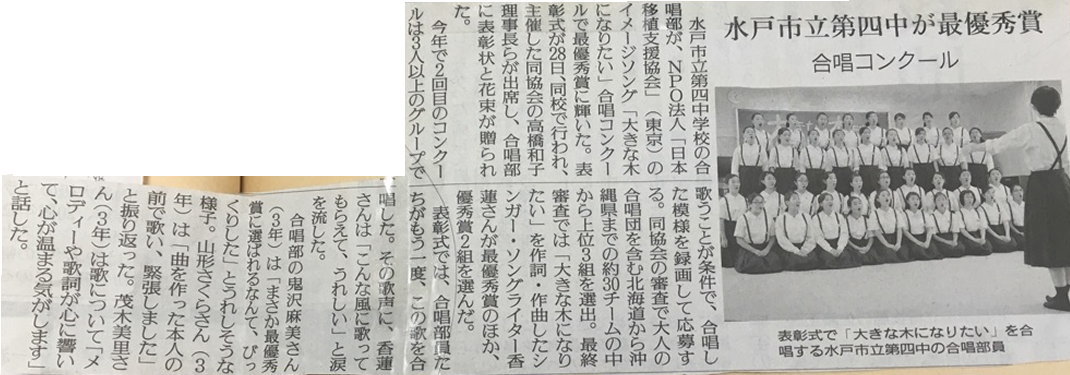 水戸市立第四中が最優秀賞
合唱コンクール
水戸市立第四中学校の合
唱部が、NPO法人「日本
移植支援協会」（東京）の
イメージソング「大きな木
になりたい」合唱コンクー
ルで最優秀賞に輝いた。表
彰式が28日、同校で行われ、
主催した同協会の高橋和子
理事長らが出席し、合唱部
に表彰状と花束が贈られ
た。
今年で2回目のコンクー
ルは3人以上のグループで
歌うことが条件で、合唱し
た模様を録画して応募す
る。同協会の審査で大人の
合唱団を含む北海道から沖
縄県までの約30チームの中
から上位3組を選出。最終
審査では「大きな木になり
たい」を作詞・作曲したシ
ンガー・ソングライター香
蓮さんが最優秀賞のほか、
優秀賞2組を選んだ。
表彰式では、合唱部員た
ちがもう一度、この歌を合
唱した。その歌声に、香蓮
さんは「こんな風に歌って
もらえて、うれしい」と涙
を流した。
合唱部の鬼沢麻美さん
（3年）は「まさか最優秀
賞に選ばれるなんて、びっ
くりした」とうれしそうな
様子。山形さくらさん（3
年）は「曲を作った本人の
前で歌い、緊張しました」
と振り返った。茂木美里さ
ん（3年）は歌について「メ
ロディーや歌詞が心に響い
て、心が温まる気がします」
と話した。
表彰式で「大きな木になりたい」を合
唱する水戸市立第四中の合唱部員